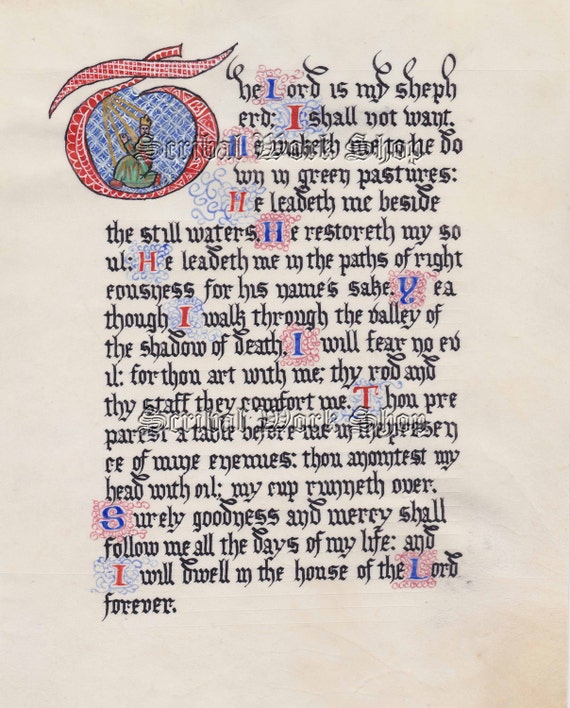 The Lord is my sheph
erd: I shall not want.
He maketh me to lie do
wn in green pastures:
He leadeth me beside
the still waters. He restoreth my so
ul: He leadeth me in the paths of right
eousness for his name's sake. Yea
though I walk through the valley of
the shadow of death, I will fear no ev
il: for thou art with me; thy rod and
thy staff they comfort me. Thou pre
parest a table before me in the presen
ce of mine enemies: thou anointest my
head with oil; my cup runneth over.
Surely goodness and mercy shall
follow me all the days of my life: and
I will dwell in the house of the Lord
forever.
Scribal Work Shop
Scribal Work Shop